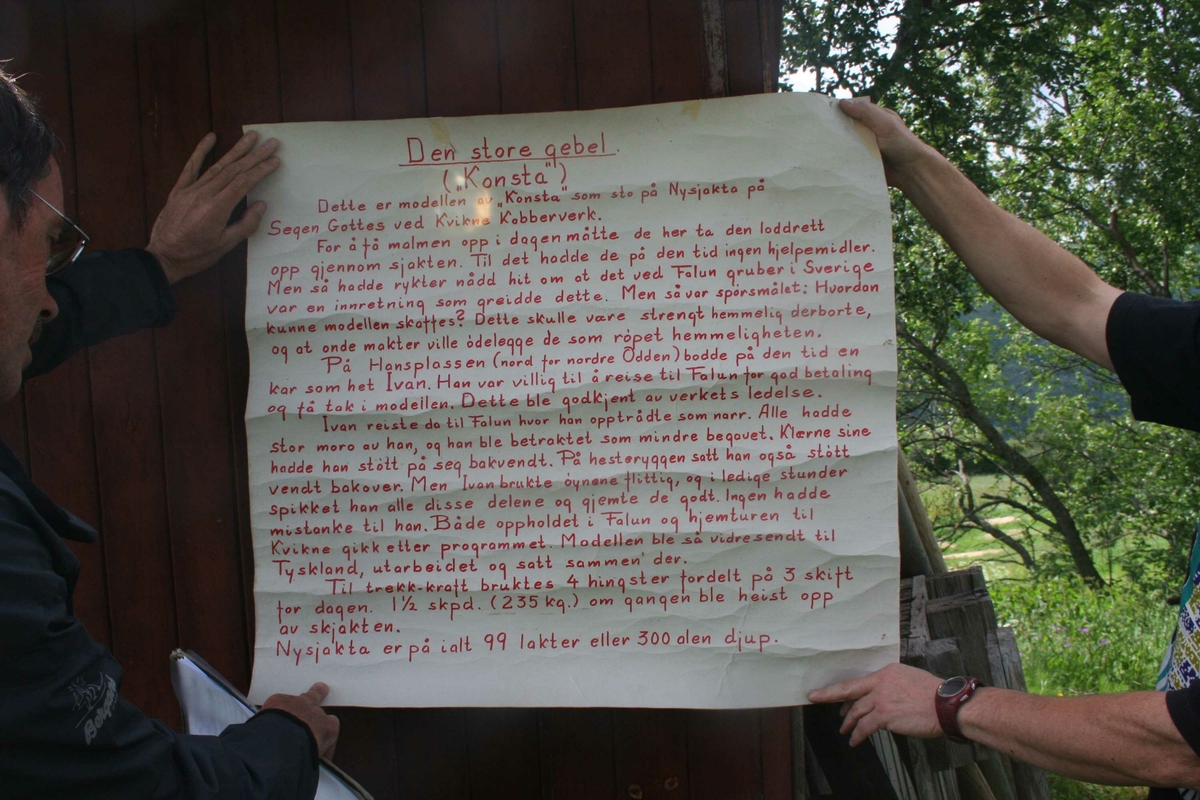 Den store gebel.
("Konsta")
Dette er modellen av „Konsta" som sto på Nysjakta på
Segen Gottes ved Kvikne Kobberverk.
For å få malmen opp i dagen måtte de her ta den loddrett
opp gjennom sjakten. Til det hadde de på den tid ingen hjelpemidler.
Men så hadde rykter nådd hit om at det ved Falun gruber i Sverige
var en innretning som greidde dette. Men så var spörsmålet: Hvordan
kunne modellen skaffes? Dette skulle være strengt hemmelig derborte,
og at onde makter ville ödelegge de som röpet hemmeligheten.
På Hansplassen (nord for nordre Odden) bodde på den tid en
kar som het Ivan. Han var villig til å reise til Falun for god betaling
og få tak i modellen. Dette ble godkjent av verkets ledelse.
Ivan reiste da til Falun hvor han opptrådte som narr. Alle hadde
stor moro av han, og han ble betraktet som mindre begavet. Klærne sine
hadde han stött på seg bakvendt. På hesteryggen satt han også stött
vendt bakover. Men Ivan brukte öynene flittig, og i ledige stunder
spikket han alle disse delene og gjemte de godt. Ingen hadde
mistanke til han. Både oppholdet i Falun og hjemturen til
Kvikne gikk etter programmet. Modellen ble så vidresendt til
Tyskland, utarbeidet og satt sammen der.
Til trekk-kraft bruktes 4 hingster fordelt på 3 skift
for dagen. 1½ skpd. (235 kg.) om gangen ble heist opp
av skjakten.
Nysjakta er på ialt 99 lakter eller 300 alen djup.